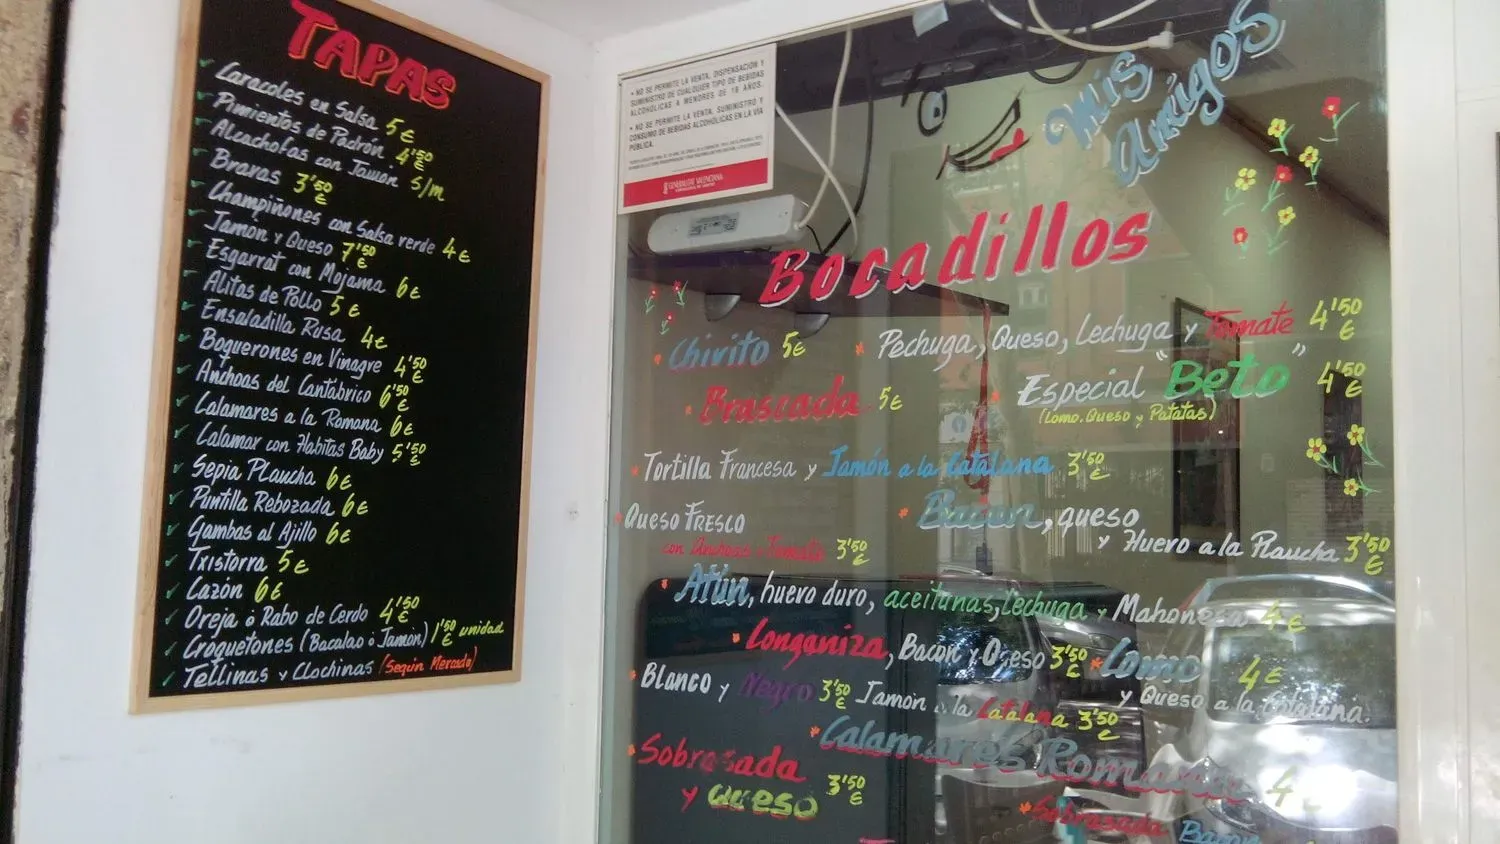 TAPAS
Caracoles en Salsa 5€
Pimientos de Padrón 4'50 €
Alcachofas con Jamón S/m
Bravas 3'50 €
Champiñones con Salsa verde 4€
Jamón y Queso 7'50 €
Esgarrat con Mojama 6€
Alitas de Pollo 5€
Ensaladilla Rusa 4€
Boquerones en Vinagre 4'50 €
Anchoas del Cantábrico 6'50 €
Calamares a la Romana 6€
Calamar con Habitas Baby 5'50 €
Sepia Plancha 6€
Puntilla Rebozada 6€
Gambas al Ajillo 6€
Txistorra 5€
Cazón 6€
Oreja ó Rabo de Cerdo 4'50 €
Croquetones (Bacalao ó Jamón) 1'50 € unidad
Tellinas y Clochinas (Según Mercado)
• NO SE PERMITE LA VENTA, DISPENSACIÓN Y
SUMINISTRO DE CUALQUIER TIPO DE BEBIDAS
ALCOHÓLICAS A MENORES DE 18 AÑOS.
• NO SE PERMITE LA VENTA, SUMINISTRO Y
CONSUMO DE BEBIDAS ALCOHÓLICAS EN LA VÍA
PÚBLICA.
GENERALITAT VALENCIANA
Mis
Amigos
Bocadillos
Chivito 5€
Pechuga, Queso, Lechuga y Tomate 4'50 €
Brascada 5€
Especial "Beto" 4'50 €
(Lomo, Queso y Patatas)
Tortilla Francesa y Jamón a la Catalana 3'50 €
Queso Fresco
con Anchoas y Tomate 3'50 €
Bacon, queso
y Huevo a la Plancha 3'50 €
Atún, huevo duro, aceitunas, lechuga y Mahonesa 4€
Longaniza, Bacon y Queso 3'50 €
Lomo 4€
y Queso a la Catalana.
Blanco y Negro 3'50 €
Jamón a la Catalana 3'50 €
Calamares Romana 4€
Sobrasada
y queso 3'50 €
Sobrasada Bacon